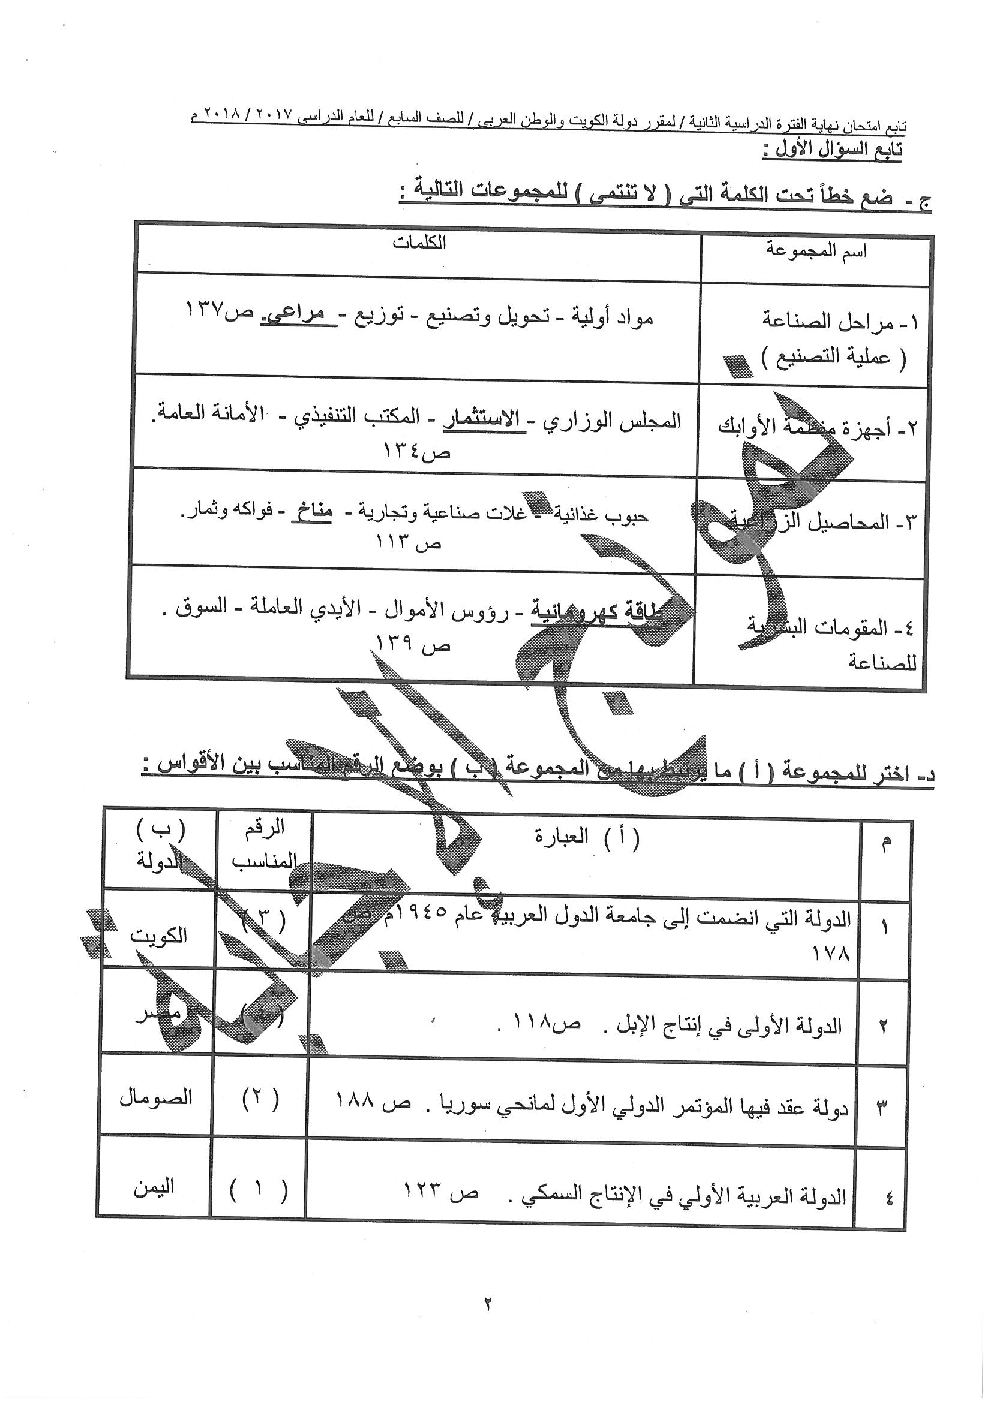 تابع امتحان نهاية الفترة الدراسية الثانية / لمقرر دولة الكويت والوطن العربي / للصف السابع / للعام الدراسي ٢٠١٧ / ٢٠١٨ م
تابع السؤال الأول :
ج - ضع خطأ تحت الكلمة التي ( لا تنتمي ) للمجموعات التالية :
اسم المجموعة
الكلمات
١- مراحل الصناعة
( عملية التصنيع )
مواد أولية - تحويل وتصنيع - توزيع - مراعي. ص١٣٧
٢- أجهزة منظمة الأوابك
المجلس الوزاري - الاستثمار - المكتب التنفيذي - الأمانة العامة.
ص١٣٤
٣- المحاصيل الزراعية
حبوب غذائية - غلات صناعية وتجارية - مناخ - فواكه وثمار.
ص ١١٣
٤- المقومات البشرية
للصناعة
طاقة كهرومائية - رؤوس الأموال - الأيدي العاملة - السوق .
ص ١٣٩
د- اختر للمجموعة ( أ ) ما يرتبط بها من المجموعة ( ب ) بوضع الرقم المناسب بين الأقواس :
م
( أ ) العبارة
الرقم
المناسب
( ب )
الدولة
١
الدولة التي انضمت إلى جامعة الدول العربية عام ١٩٤٥م ص
١٧٨
( ٣ )
الكويت
٢
الدولة الأولى في إنتاج الإبل . ص١١٨ .
( ٤ )
مصر
٣
دولة عقد فيها المؤتمر الدولي الأول لمانحي سوريا . ص ١٨٨
( ٢ )
الصومال
٤
الدولة العربية الأولي في الإنتاج السمكي . ص ١٢٣
( ١ )
اليمن
نموذج الإجابة
٢